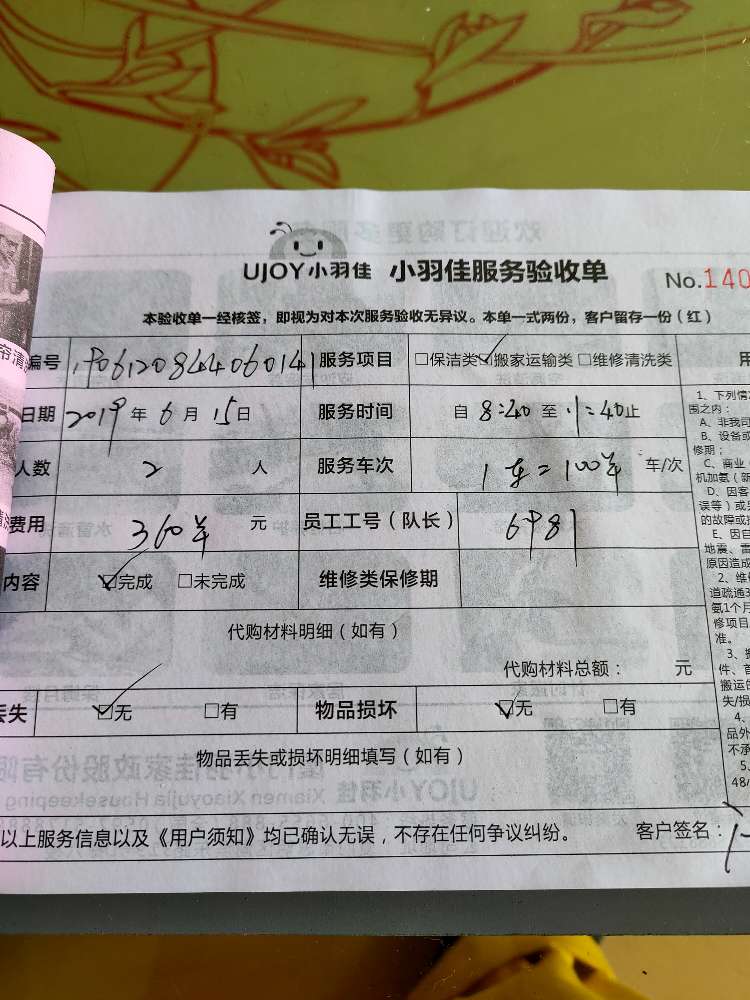 UJOY小羽佳 小羽佳服务验收单 No.140
本验收单一经核签，即视为对本次服务验收无异议。本单一式两份，客户留存一份（红）
编号 服务项目 □保洁类 ☑搬家运输类 □维修清洗类
日期 2019年6月15日 服务时间 自8:40至11:40止
人数 2 人 服务车次 1车=100 车/次
费用 360 元 员工工号（队长） 6981
内容 ☑完成 □未完成 维修类保修期
代购材料明细（如有）
代购材料总额： 元
丢失 ☑无 □有 物品损坏 ☑无 □有
物品丢失或损坏明细填写（如有）
以上服务信息以及《用户须知》均已确认无误，不存在任何争议纠纷。 客户签名：
用
1、下列情
围之内：
A、非我司
B、设备或
修期；
C、商业（
机加氨（新
D、因客
误等）或
的故障或
E、因自
地震、雷
原因造成
2、维
道疏通3
氨1个月
修项目
准。
3、搬
件、首
搬运的
失/损
4、
品外
不承
5、
48/